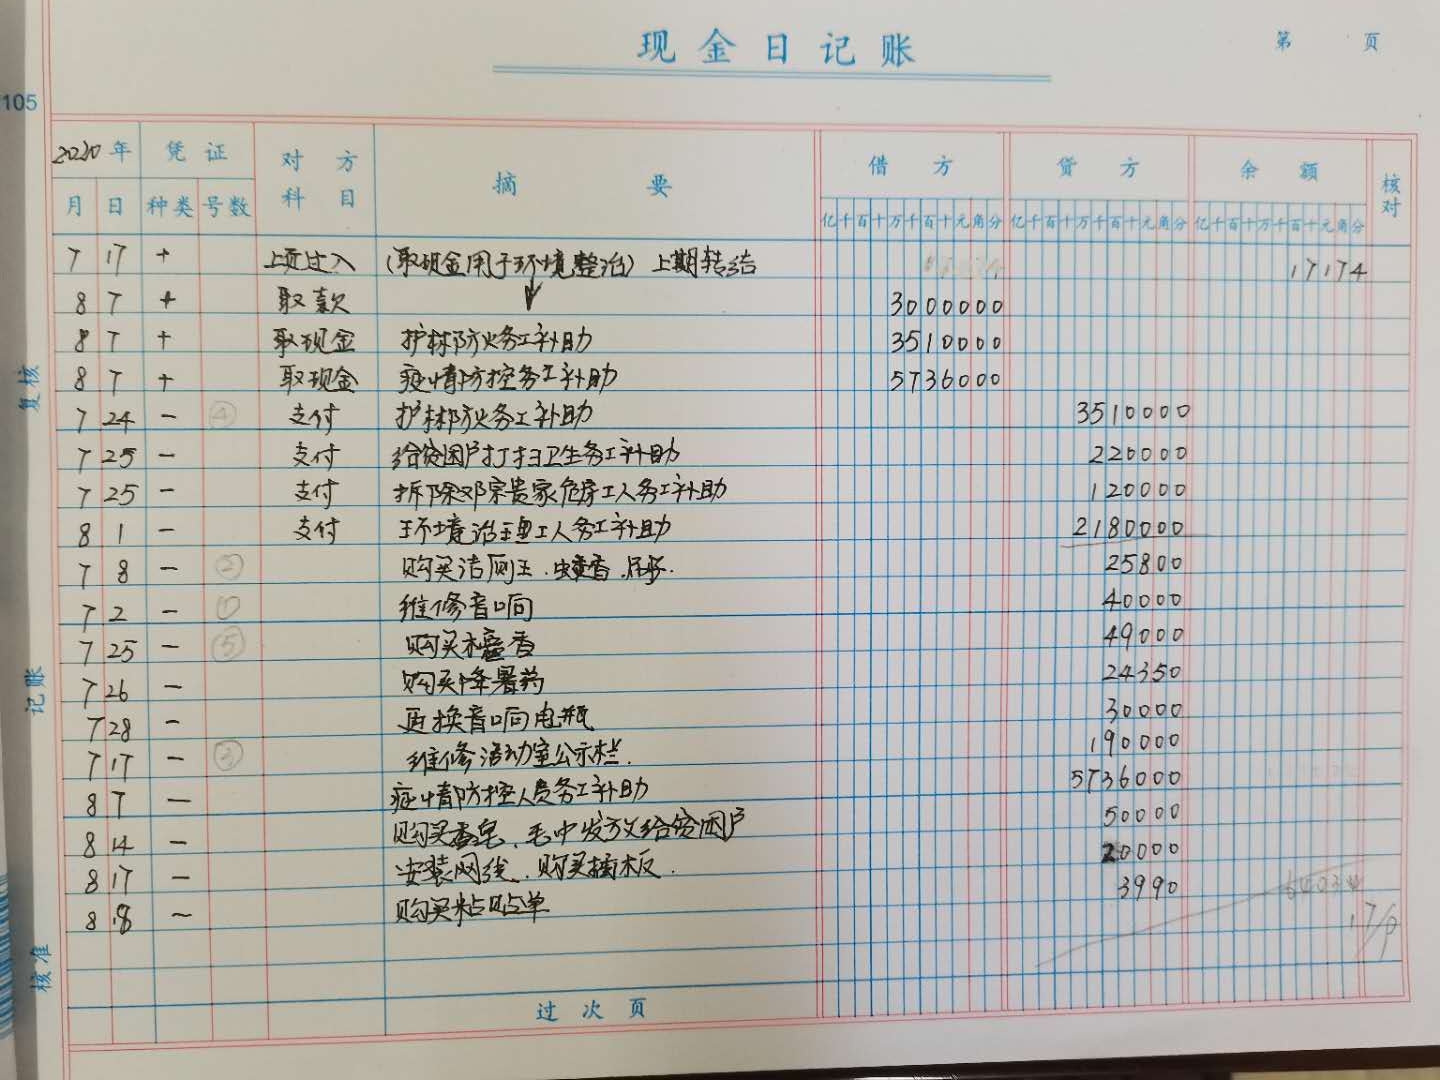 现金日记账
第 页
105
2020年 凭证 对方科目 摘要 借方 贷方 余额 核对
月 日 种类 号数 亿千百十万千百十元角分 亿千百十万千百十元角分 亿千百十万千百十元角分
7 17 + 上页过入 (取现金用于环境整治) 上期转结 17174
8 7 + 取款 3000000
8 7 + 取现金 护林防火务工补助 3510000
8 7 + 取现金 疫情防控务工补助 5736000
7 24 - ④ 支付 护林防火务工补助 3510000
7 25 - 支付 给贫困户打扫卫生务工补助 220000
7 25 - 支付 拆除邓宗贵家危房工人务工补助 120000
8 1 - 支付 环境治理工人务工补助 2180000
7 8 - ② 购买洁厕王、蚊香 25800
7 2 - ① 维修音响 40000
7 25 - ⑤ 购买檀香 49000
7 26 - 购买降暑药 24350
7 28 - 更换音响电瓶 30000
7 17 - ③ 维修活动室公示栏. 190000
8 7 - 疫情防控人员务工补助 5736000
8 14 - 购买香皂、毛巾发放给贫困户 50000
8 17 - 安装网线、购买插板. 20000
8 18 - 购买粘贴单 3990
过次页
复核
记账
核准